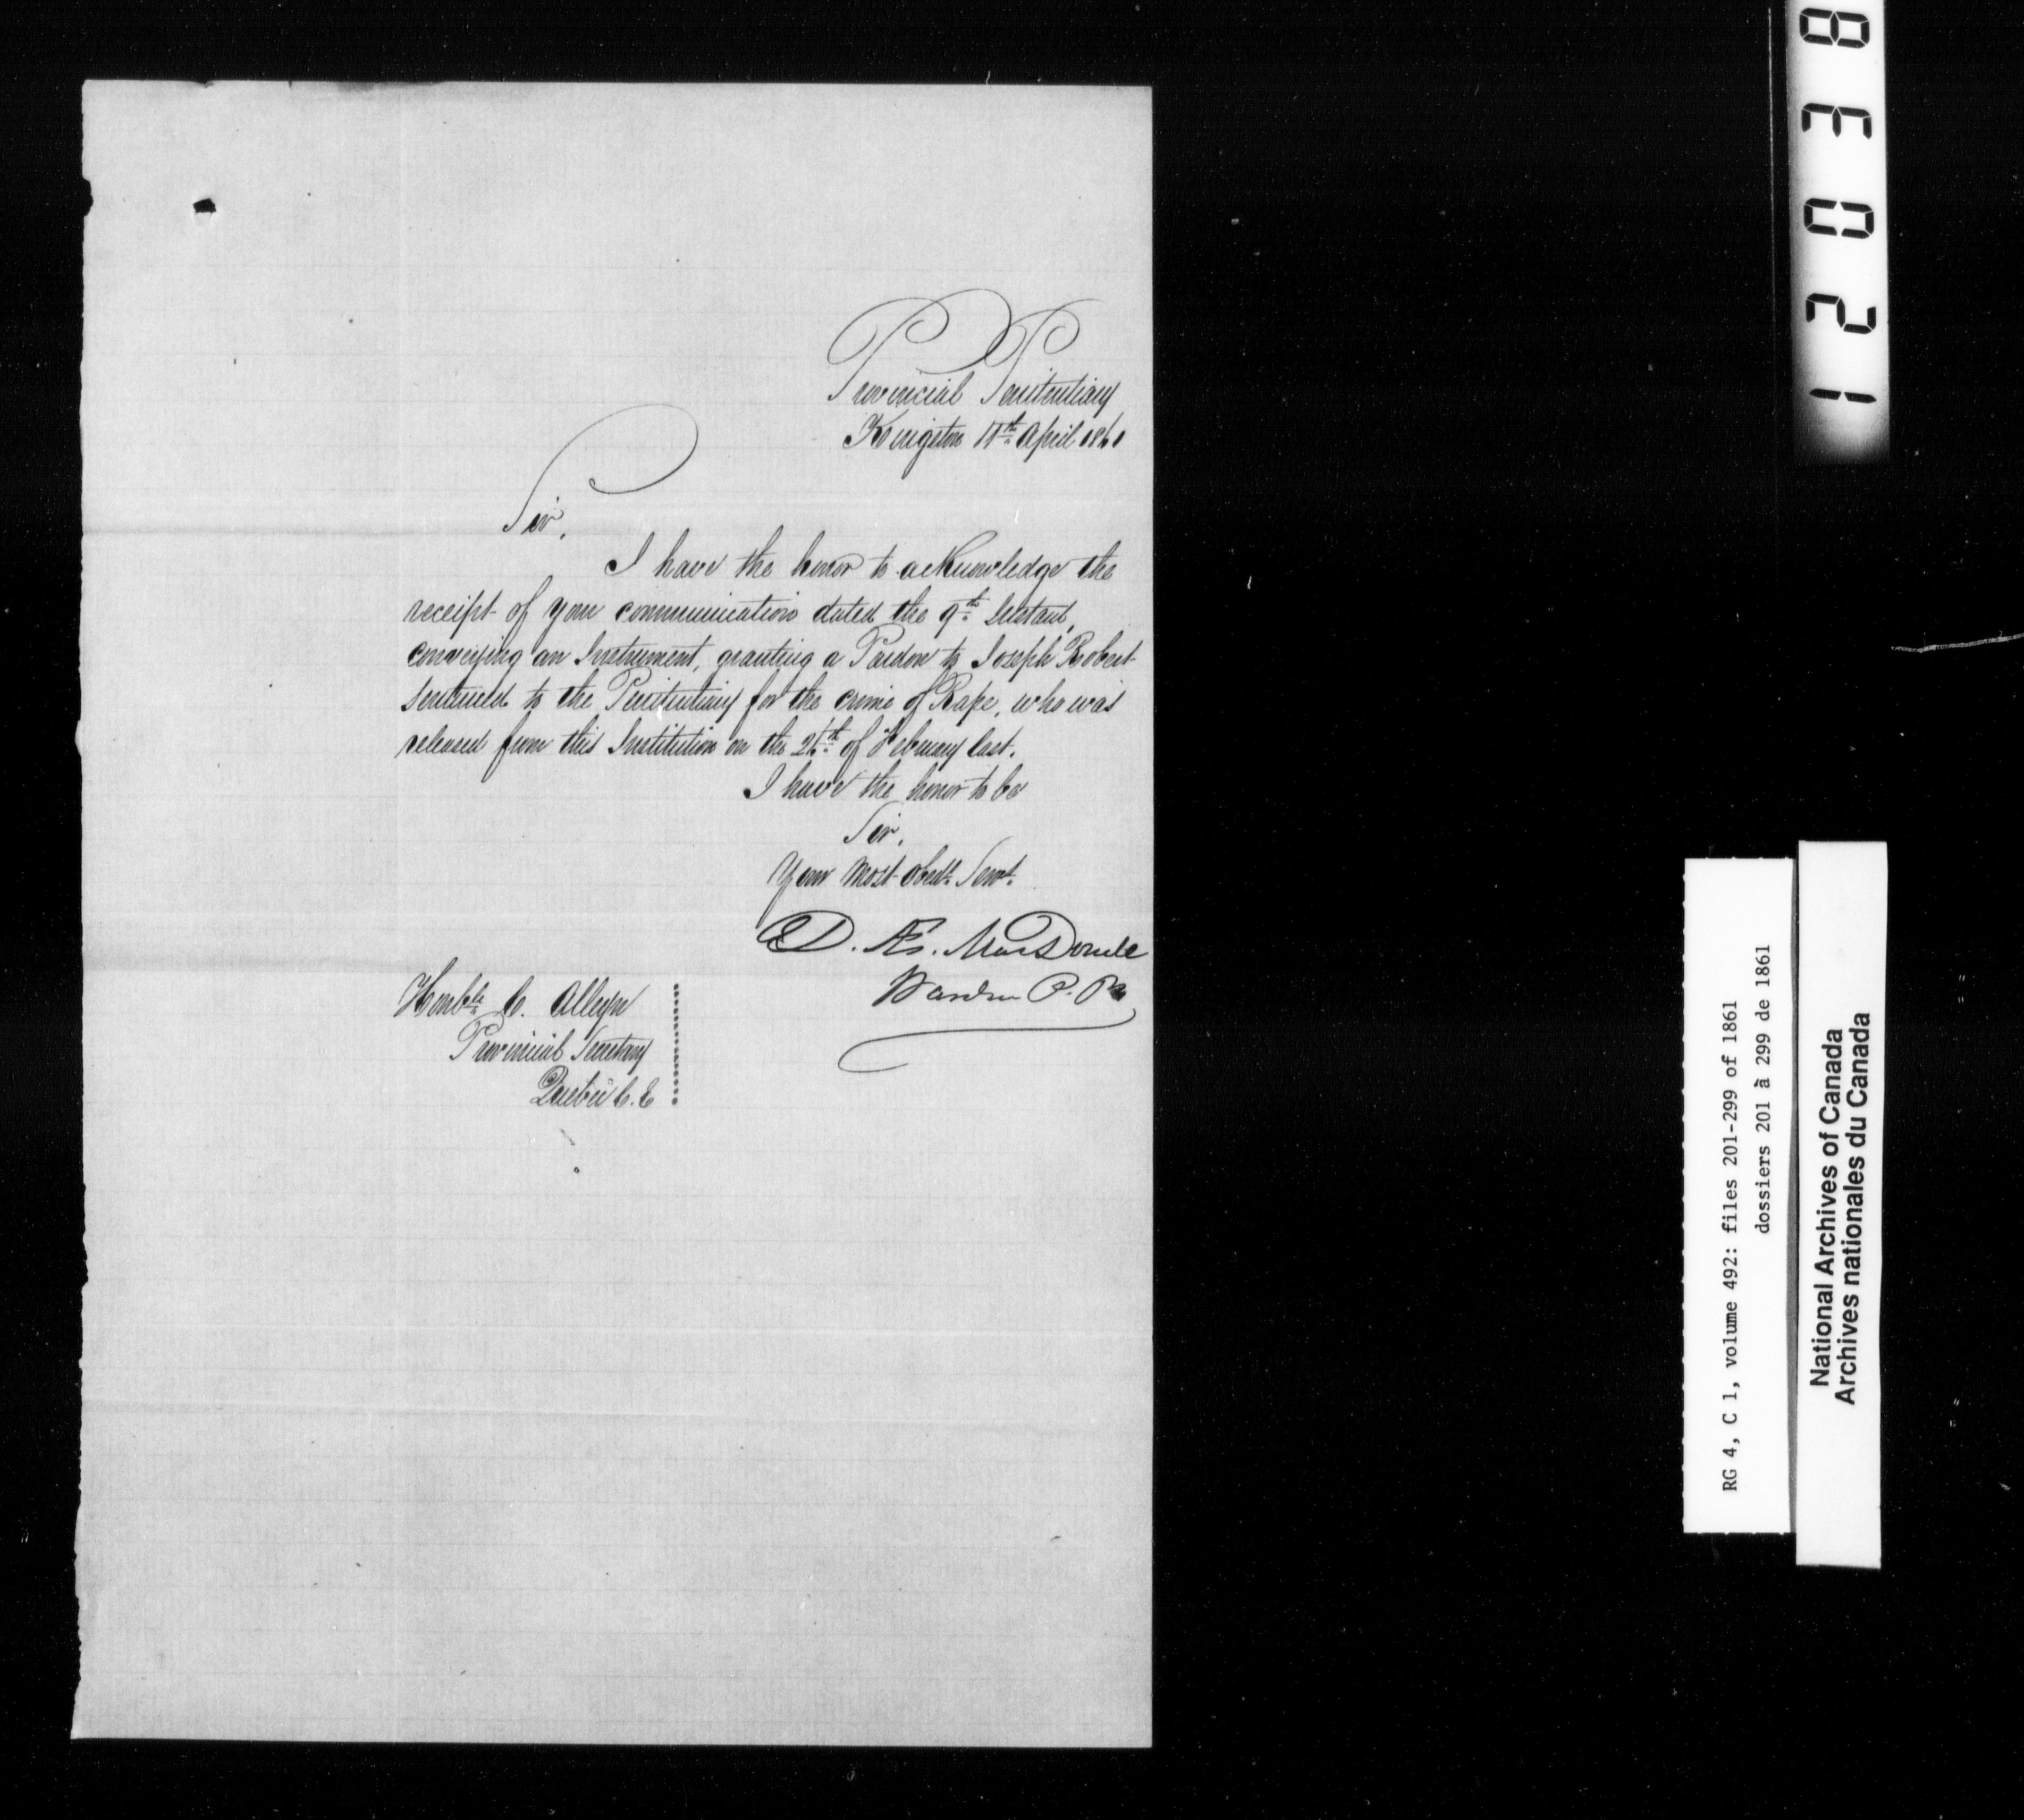 Provincial Penitentiary
Kingston 11th April 1861
Sir,
I have the honor to acknowledge the
receipt of your communication dated the 9th Instant,
conveying an Instrument, granting a Pardon to Joseph Robert
sentenced to the Penitentiary for the crime of Rape, who was
released from this Institution on the 26th of February last.
I have the honor to be
Sir,
Your most obedt. Servt.
D. Æ. MacDonell
Warden P. P.
Honble C. Alleyn
Provincial Secretary
Quebec C. E
12038
RG 4, C 1, volume 492: files 201-299 of 1861
dossiers 201 à 299 de 1861
National Archives of Canada
Archives nationales du Canada